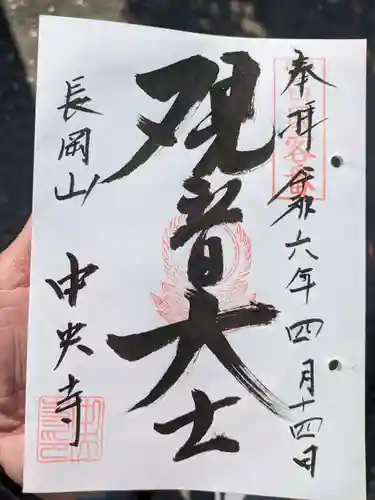 奉拜 令和六年四月十四日
観音大士
長岡山 中央寺